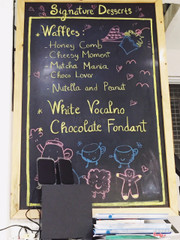 Signature Desserts
Waffles:
- Honey Comb
- Cheesy Moment
- Matcha Mania
- Choco Lover
- Nutella and Peanut
White Vocalno
Chocolate Fondant